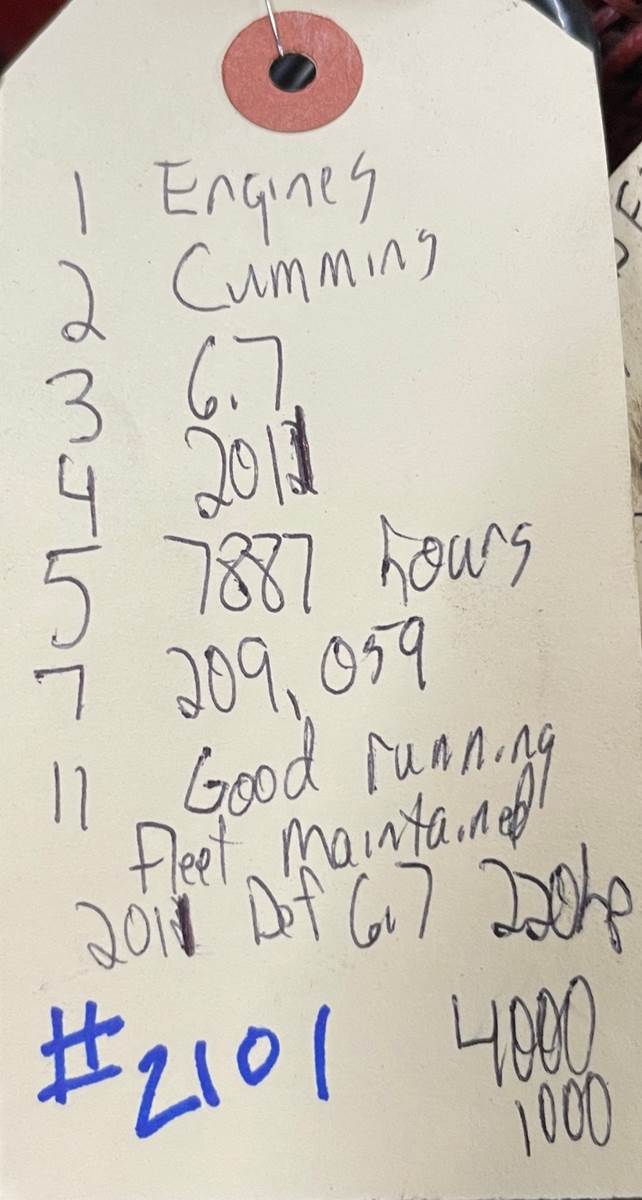 1 Engines
2 Cummins
3 6.7
4 2011
5 7887 hours
7 209,059
11 Good running
fleet maintained
2011 Def 6.7 220hp
#2101 4000
1000